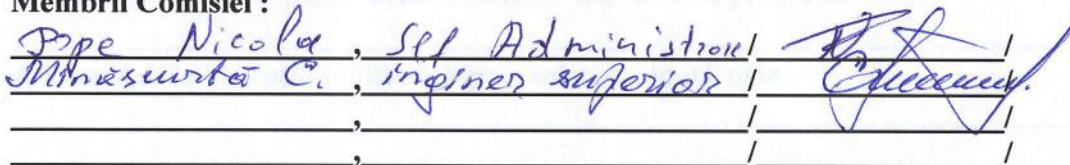 Membrii Comisiei :
Pope Nicolae, Șef Administrare/ /
Minăscurtă C., inginer superior / /
, / /
, / /